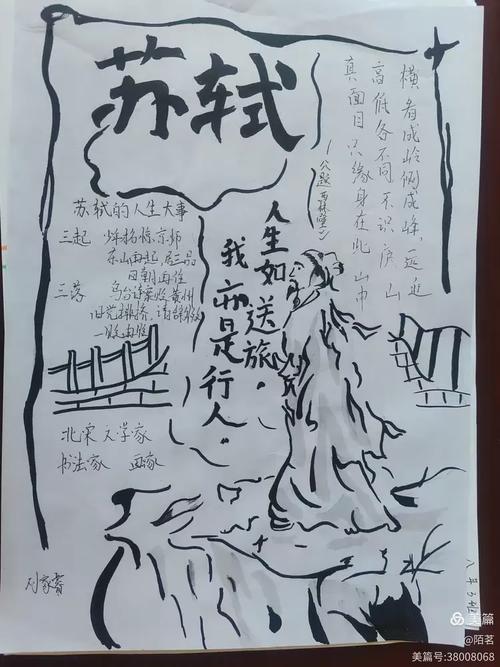 苏轼
横看成岭侧成峰，远近
高低各不同 不识庐山
真面目 只缘身在此 山中
《题西林壁》
苏轼的人生大事
三起 少年扬榜 京师
东山再起 居三品
回朝再任
三落 乌台诗案贬黄州
旧党排挤，请辞
一贬再贬
人生如送旅，
我亦是行人。
北宋文学家
书法家 画家
刘家睿
八年3班
美篇
@陌茗
美篇号:38008068